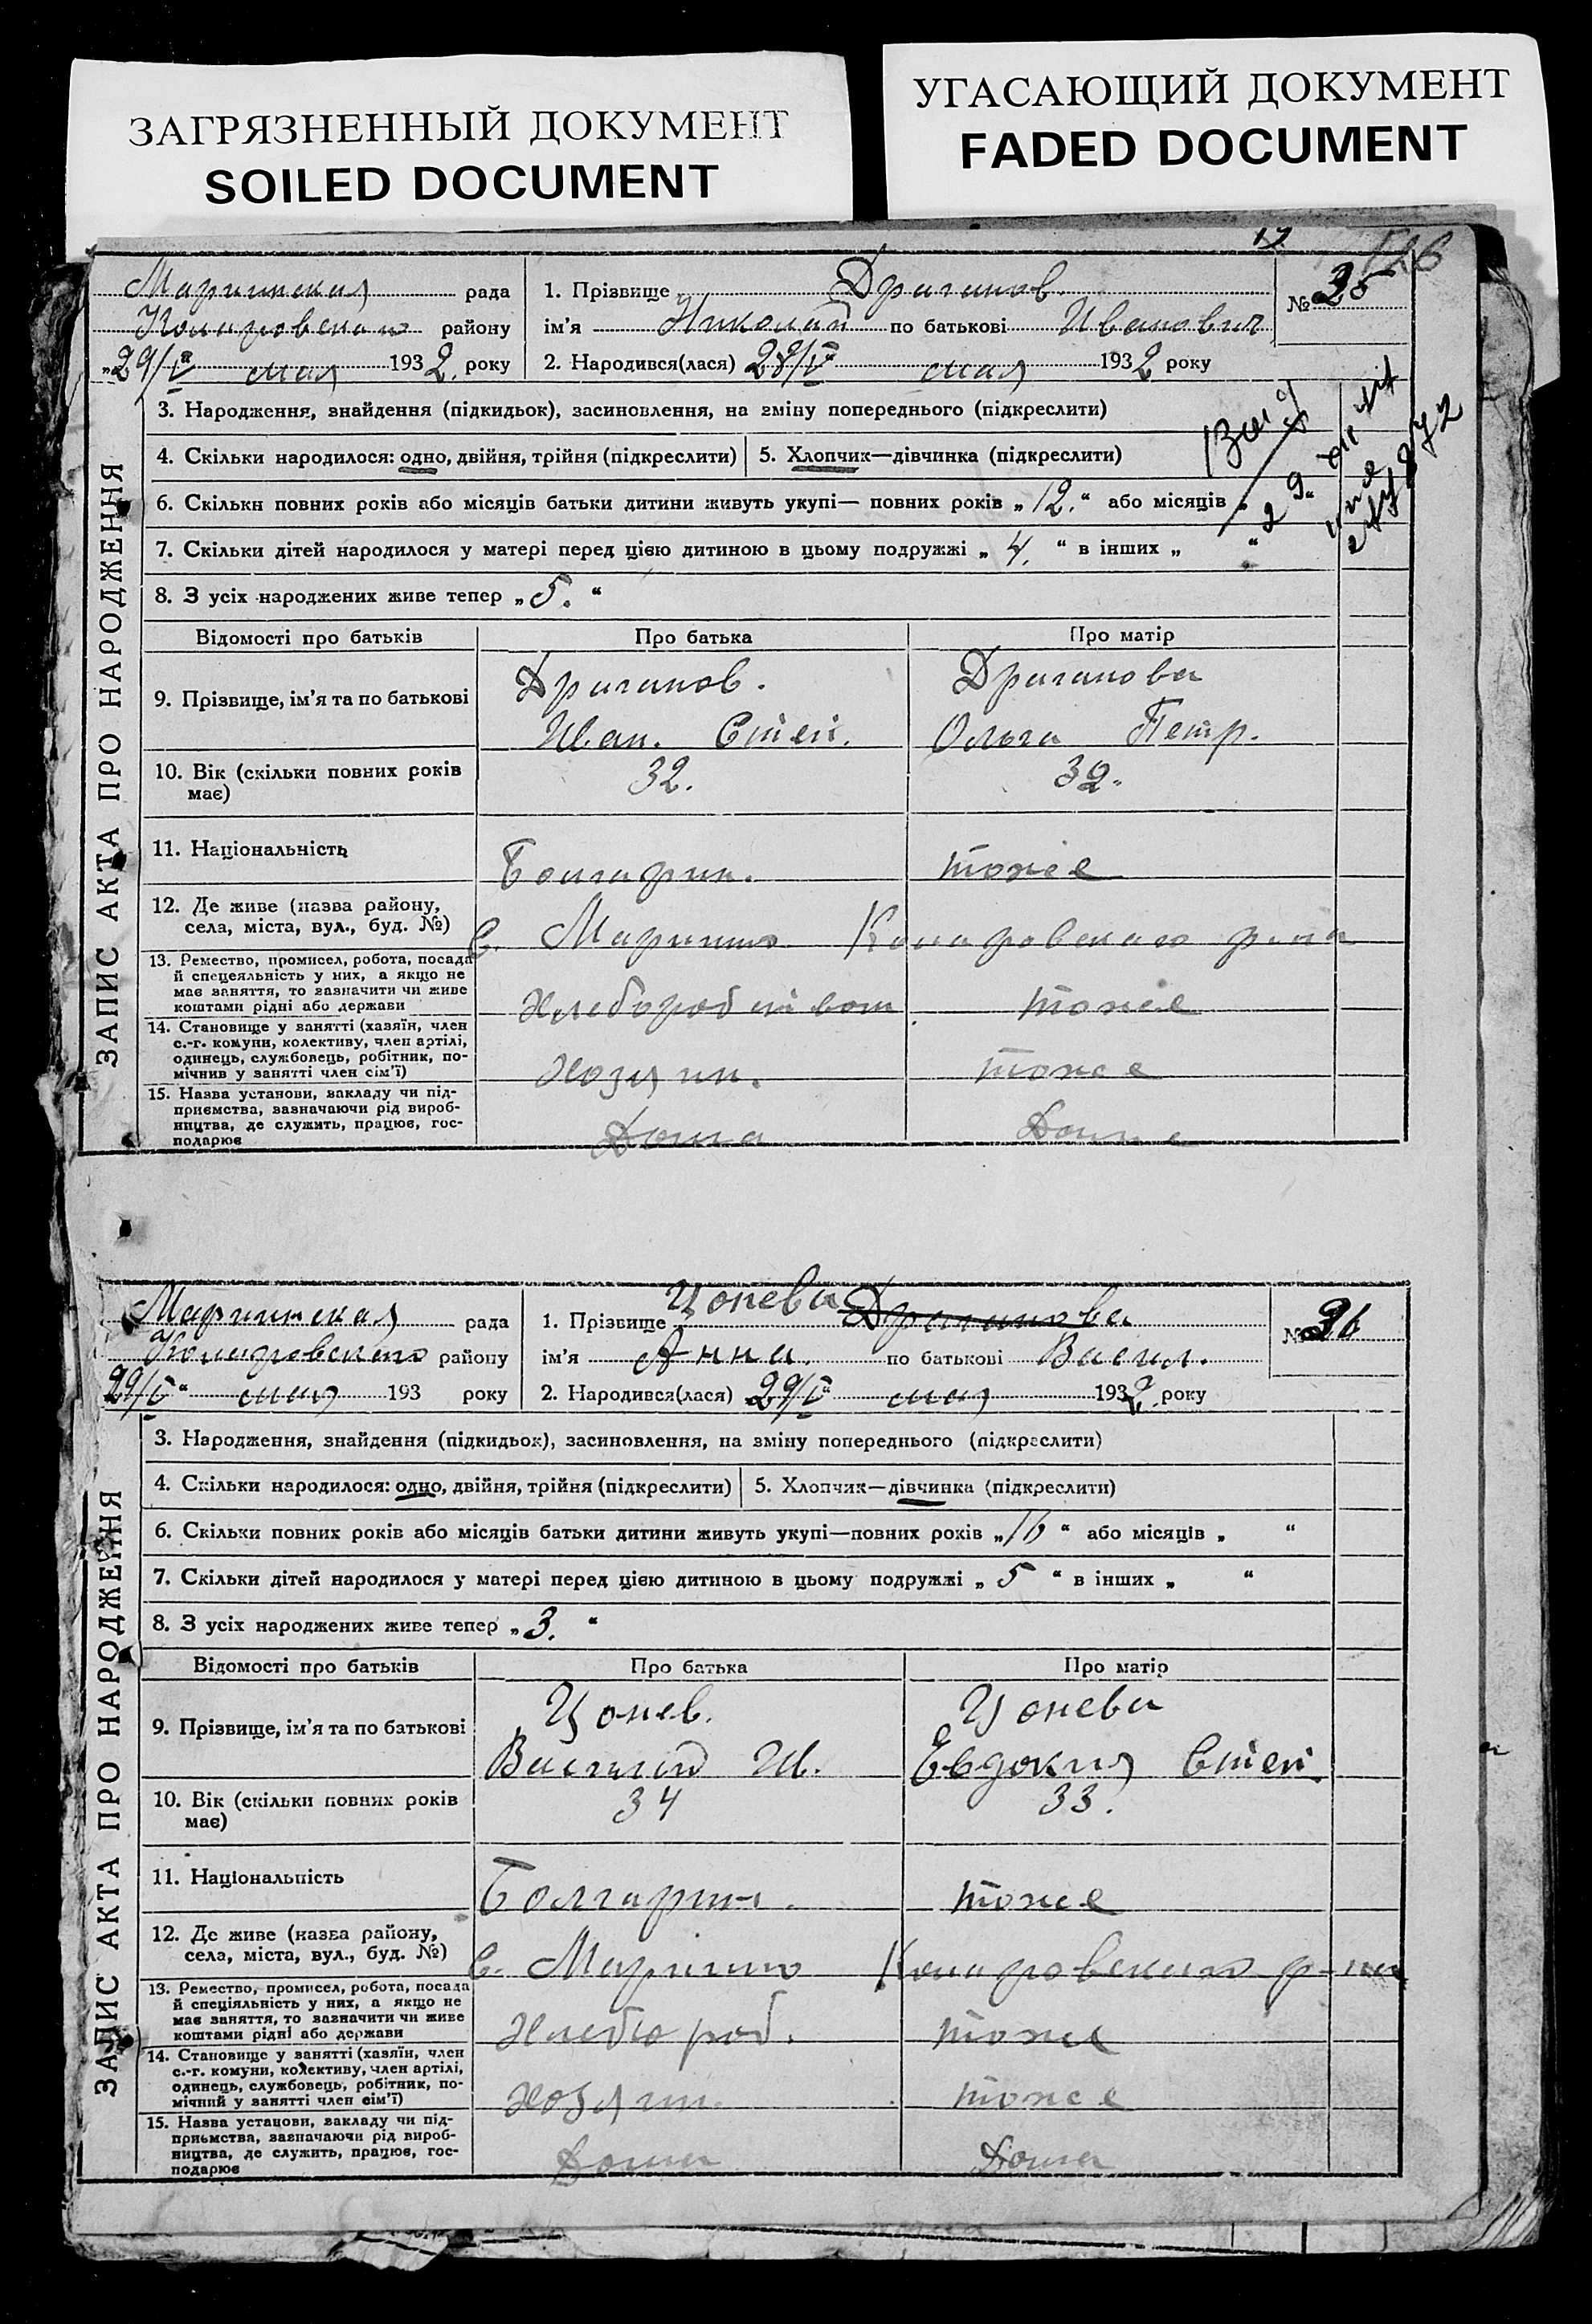 ЗАГРЯЗНЕННЫЙ ДОКУМЕНТ
SOILED DOCUMENT
УГАСАЮЩИЙ ДОКУМЕНТ
FADED DOCUMENT
Мариинская рада
Коларовского району
„29/V“ мая 1932. року
1. Прізвище Драганов.
ім'я Николай по батькові Иванович
2. Народився(лася) 29/V мая 1932 року
№ 35
ЗАПИС АКТА ПРО НАРОДЖЕННЯ
3. Народження, знайдення (підкидьок), засиновлення, на зміну попереднього (підкреслити)
4. Скільки народилося: одно, двійня, трійня (підкреслити) 5. Хлопчик—дівчинка (підкреслити)
6. Скільки повних років або місяців батьки дитини живуть укупі— повних років „12.“ або місяців „ “
7. Скільки дітей народилося у матері перед цією дитиною в цьому подружжі „4.“ в інших „ “
8. З усіх народжених живе тепер „5.“
Відомості про батьків Про батька Про матір
9. Прізвище, ім'я та по батькові
Драганов. Драганова
Иван. Степ. Ольга Петр.
10. Вік (скільки повних років має) 32. 32.
11. Національність Болгарин. тоже
12. Де живе (назва району, села, міста, вул., буд. №) С. Мариино Коларовского р-на
13. Ремество, промисел, робота, посада
й спецеяльність у них, а якщо не
має заняття, то зазначити чи живе
коштами рідні або держави
тоже
14. Становище у занятті (хазяїн, член
с.-г. комуни, колективу, член артілі,
одинець, службовець, робітник, по-
мічнив у занятті член сім'ї)
Хозяин. тоже
15. Назва установи, закладу чи під-
приємства, зазначаючи рід вироб-
ництва, де служить, працює, гос-
подарює
Дома Дома
Мариинская рада
Коларовского району
29/V“ мая 193 року
Цонева Драганова
1. Прізвище
ім'я Анна. по батькові Васил.
2. Народився(лася) 29/V“ мая 1932. року
№ 36
ЗАПИС АКТА ПРО НАРОДЖЕННЯ
3. Народження, знайдення (підкидьок), засиновлення, на зміну попереднього (підкреслити)
4. Скільки народилося: одно, двійня, трійня (підкреслити) 5. Хлопчик—дівчинка (підкреслити)
6. Скільки повних років або місяців батьки дитини живуть укупі—повних років „16“ або місяців „ “
7. Скільки дітей народилося у матері перед цією дитиною в цьому подружжі „5“ в інших „ “
8. З усіх народжених живе тепер „3.“
Відомості про батьків Про батька Про матір
9. Прізвище, ім'я та по батькові
Цонев. Цонева
Василий И. Евдокия Степ.
10. Вік (скільки повних років має) 34 33.
11. Національність Болгарин. тоже
12. Де живе (назва району, села, міста, вул., буд. №) С. Мариино Коларовского р-на
13. Ремество, промисел, робота, посада
й спеціяльність у них, а якщо не
має заняття, то зазначити чи живе
коштами рідні або держави
Хлебороб. тоже
14. Становище у занятті (хазяїн, член
с.-г. комуни, колективу, член артілі,
одинець, службовець, робітник, по-
мічний у занятті член сім'ї)
Хозяин. тоже
15. Назва установи, закладу чи під-
приємства, зазначаючи рід вироб-
ництва, де служить, працює, гос-
подарює
Дома Дома